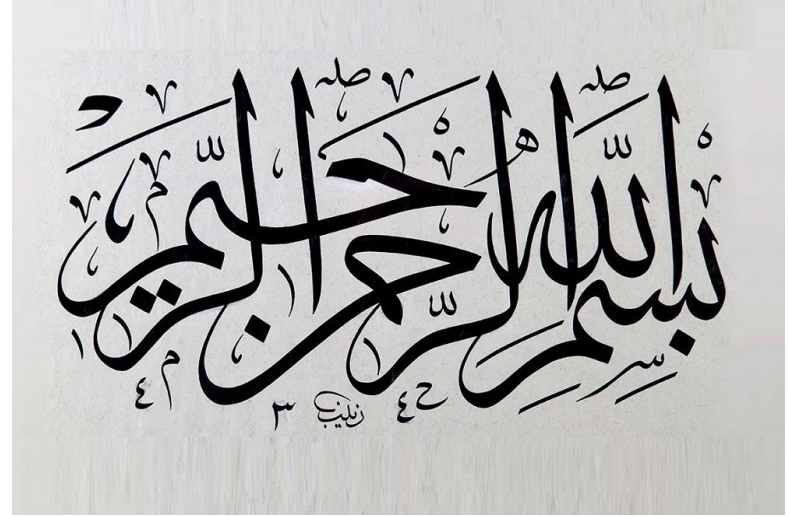 بِسْمِ اللّٰهِ الرَّحْمٰنِ الرَّحِيمِ
٣ زينب ٤